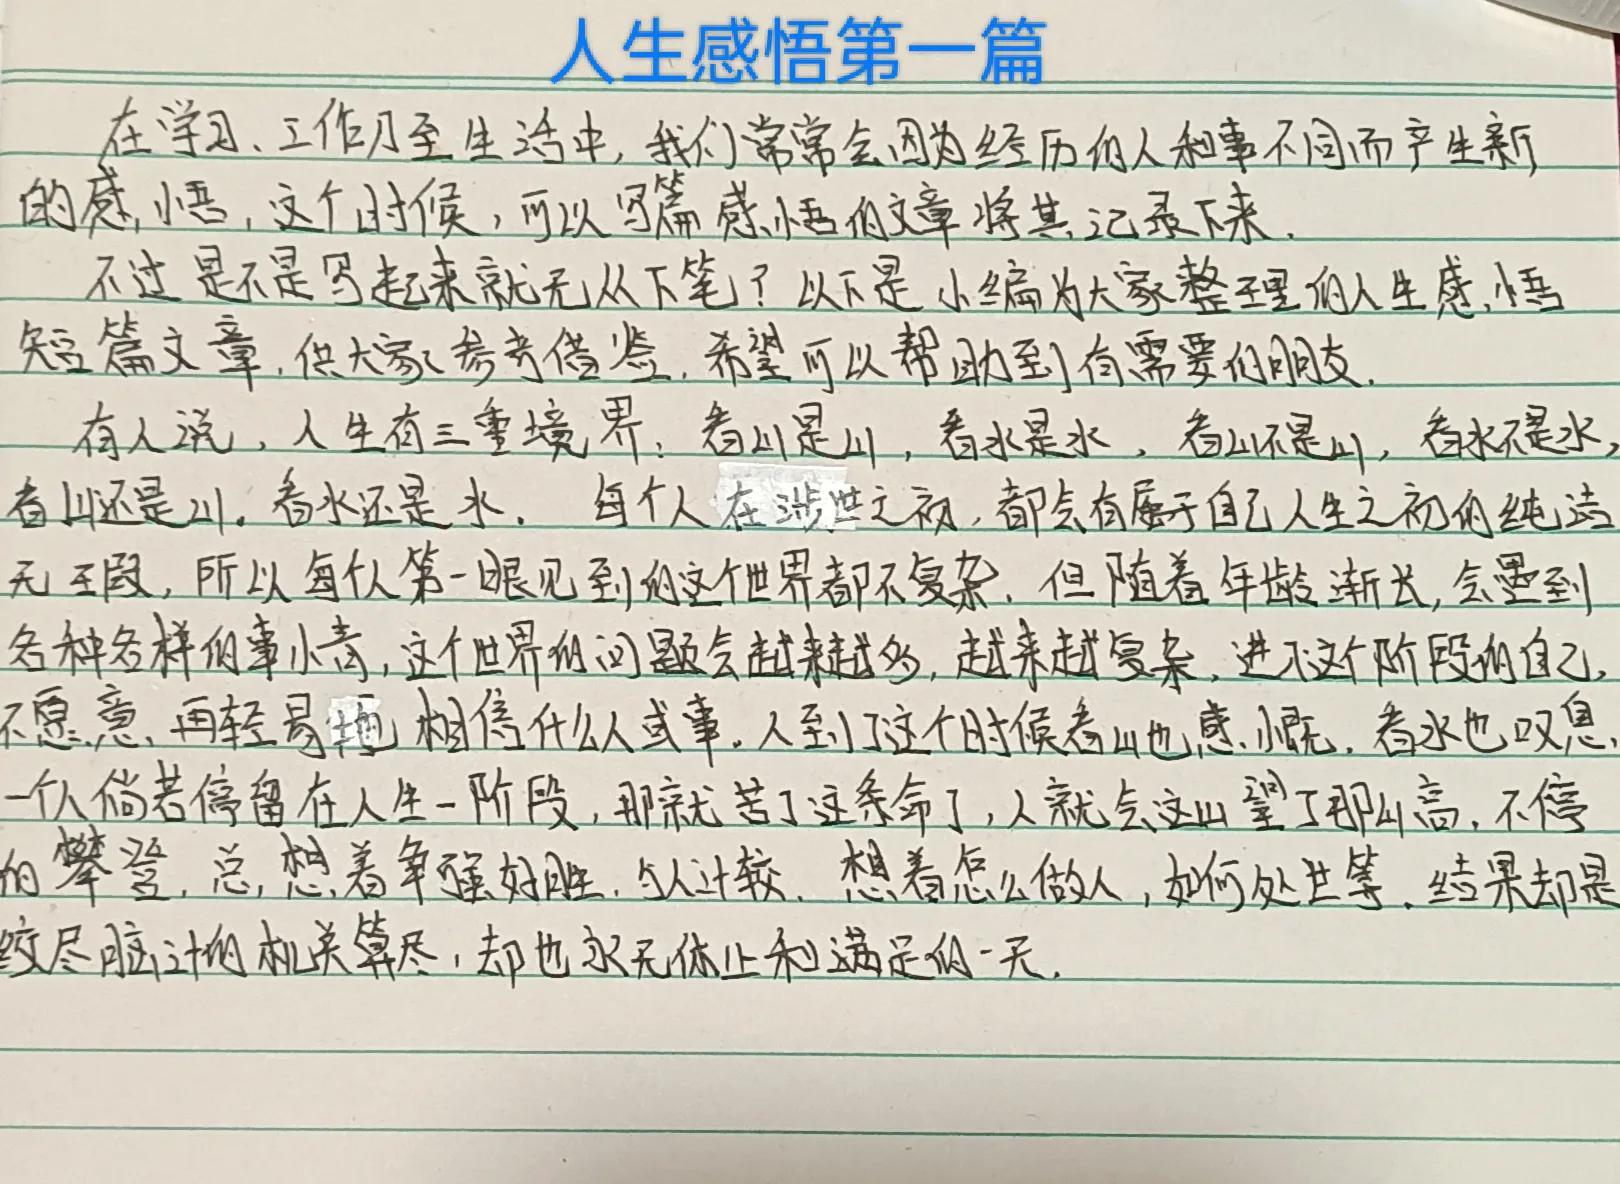 人生感悟第一篇
在学习、工作乃至生活中，我们常常会因为经历的人和事不同而产生新
的感悟，这个时候，可以写篇感悟的文章将其记录下来.
不过是不是写起来就无从下笔？以下是小编为大家整理的人生感悟
短篇文章，供大家参考借鉴，希望可以帮助到有需要的朋友.
有人说，人生有三重境界：看山是山，看水是水，看山不是山，看水不是水，
看山还是山。看水还是水. 每个人在涉世之初，都会有属于自己人生之初的纯洁
无瑕，所以每个人第一眼见到的这个世界都不复杂. 但随着年龄渐长，会遇到
各种各样的事情，这个世界的问题会越来越多，越来越复杂，进入这个阶段的自己，
不愿意再轻易地相信什么人或事. 人到了这个时候看山也感慨，看水也叹息，
一个人倘若停留在人生一阶段，那就苦了这条命了，人就会这山望了那山高，不停
的攀登，总想着争强好胜，与人计较，想着怎么做人，如何处世等，结果却是
绞尽脑汁的机关算尽，却也永无休止和满足的一天.